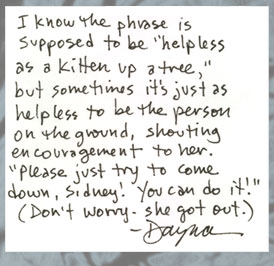 I know the phrase is
supposed to be "helpless
as a kitten up a tree,"
but sometimes it's just as
helpless to be the person
on the ground, shouting
encouragement to her.
"Please just try to come
down, Sidney! You can do it!"
(Don't worry- she got out.)
-Dayna